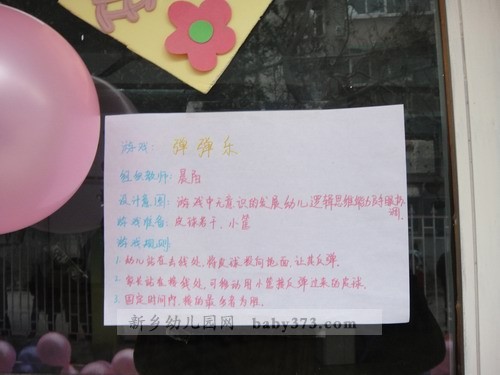 游戏：弹弹乐
组织教师：晨阳
设计意图：游戏中无意识的发展幼儿逻辑思维能力及手眼协调。
游戏准备：皮球若干、小筐
游戏规则
1. 幼儿站在去线处，将皮球投向地面，让其反弹。
2. 家长站在接线处，可移动用小筐接反弹过来的皮球。
3. 固定时间内，接的最多者为胜。
新乡幼儿园网 baby373.com